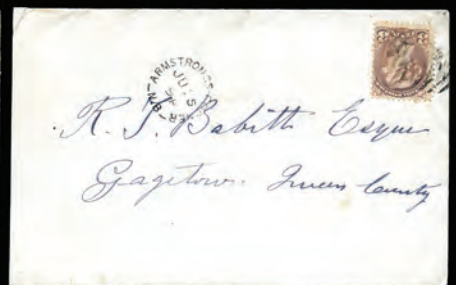 3 3
ARMSTRONG'S
JU 5
N.B
R. T. Babitt Esque
Gagetown. Queens County